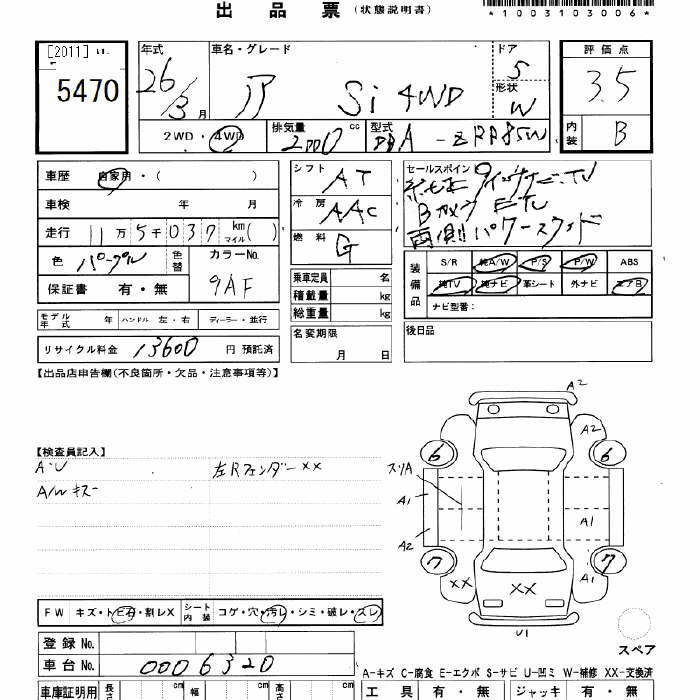 出品票 (状態説明書)
*1003103006*
[2011]
5470
年式 26/3月
車名・グレード Si 4WD
ドア 5
形状 W
評価点 3.5
内装 B
2WD・4WD
排気量 2000 cc
型式 DBA-ZRR85W
車歴 自家用・( )
車検 年 月
走行 11万5千037 km マイル( )
色 パープル
色替
カラーNo. 9AF
保証書 有・無
モデル年式 年 ハンドル 左・右 ディーラー・並行
リサイクル料金 13600 円 預託済
シフト AT
冷房 AAC
燃料 G
乗車定員 名
積載量 kg
総重量 kg
名変期限
月 日
セールスポイント
Bカメラ ETC
両側パワースライド
装備品
S/R 純A/W P/S P/W ABS
純TV 純ナビ 革シート 外ナビ エアB
ナビ型番:
後日品
【出品店申告欄(不良箇所・欠品・注意事項等)】
【検査員記入】
A・U
左Rフェンダー××
A/Wキズ
A2
A2
6
6
スリA
A1
A1
A2
7
7
A1
××
××
U1
スペア
FW キズ・トビ石・割レX
シート内装 コゲ・穴・汚レ・シミ・破レ・スレ
登録No.
車台No. 0006320
A-キズ C-腐食 E-エクボ S-サビ U-凹ミ W-補修 XX-交換済
車庫証明用 長さ cm 幅 cm 高さ cm
工具 有・無 ジャッキ 有・無